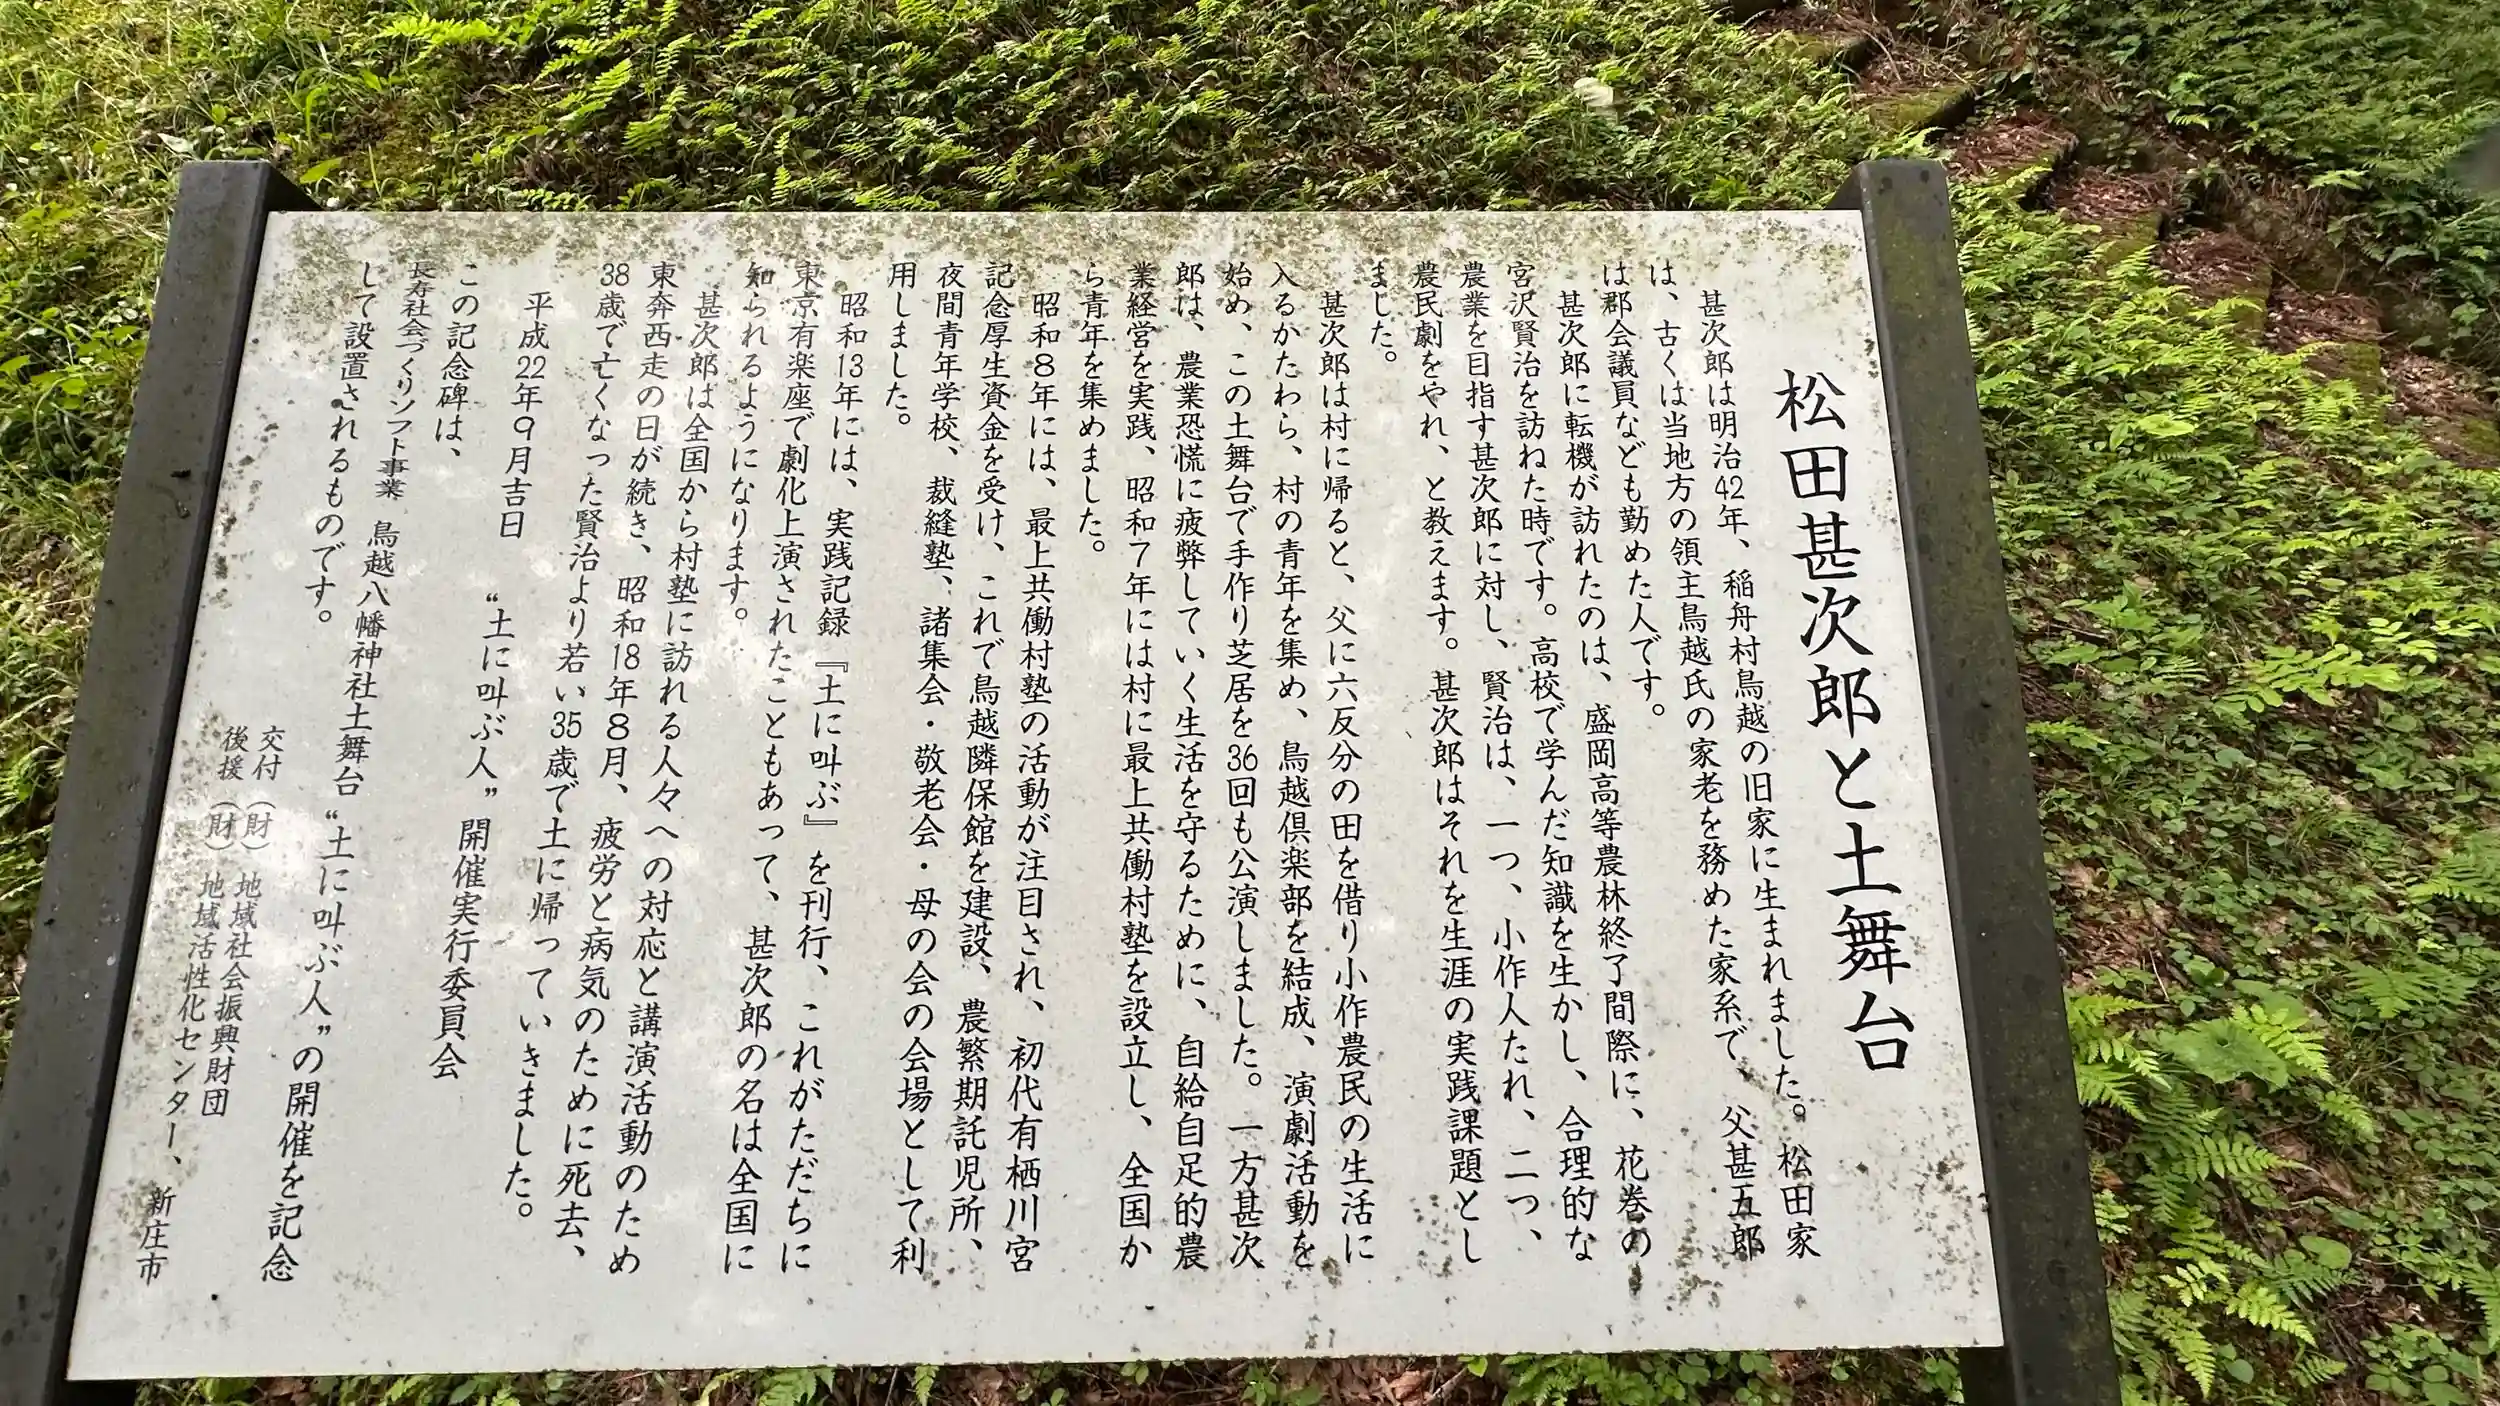 松田甚次郎と土舞台
甚次郎は明治42年、稲舟村鳥越の旧家に生まれました。松田家
は、古くは当地方の領主鳥越氏の家老を務めた家系で、父甚五郎
は郡会議員なども勤めた人です。
甚次郎に転機が訪れたのは、盛岡高等農林終了間際に、花巻の
宮沢賢治を訪ねた時です。高校で学んだ知識を生かし、合理的な
農業を目指す甚次郎に対し、賢治は、一つ、小作人たれ、二つ、
農民劇をやれ、と教えます。甚次郎はそれを生涯の実践課題とし
ました。
甚次郎は村に帰ると、父に六反分の田を借り小作農民の生活に
入るかたわら、村の青年を集め、鳥越倶楽部を結成、演劇活動を
始め、この土舞台で手作り芝居を36回も公演しました。一方甚次
郎は、農業恐慌に疲弊していく生活を守るために、自給自足的農
業経営を実践、昭和7年には村に最上共働村塾を設立し、全国か
ら青年を集めました。
昭和8年には、最上共働村塾の活動が注目され、初代有栖川宮
記念厚生資金を受け、これで鳥越隣保館を建設、農繁期託児所、
夜間青年学校、裁縫塾、諸集会・敬老会・母の会の会場として利
用しました。
昭和13年には、実践記録『土に叫ぶ』を刊行、これがただちに
東京有楽座で劇化上演されたこともあって、甚次郎の名は全国に
知られるようになります。
甚次郎は全国から村塾に訪れる人々への対応と講演活動のため
東奔西走の日が続き、昭和18年8月、疲労と病気のために死去、
38歳で亡くなった賢治より若い35歳で土に帰っていきました。
平成22年9月吉日
“土に叫ぶ人”開催実行委員会
この記念碑は、
長寿社会づくりソフト事業 鳥越八幡神社土舞台“土に叫ぶ人”の開催を記念
して設置されるものです。
交付 （財）地域社会振興財団
後援 （財）地域活性化センター、新庄市